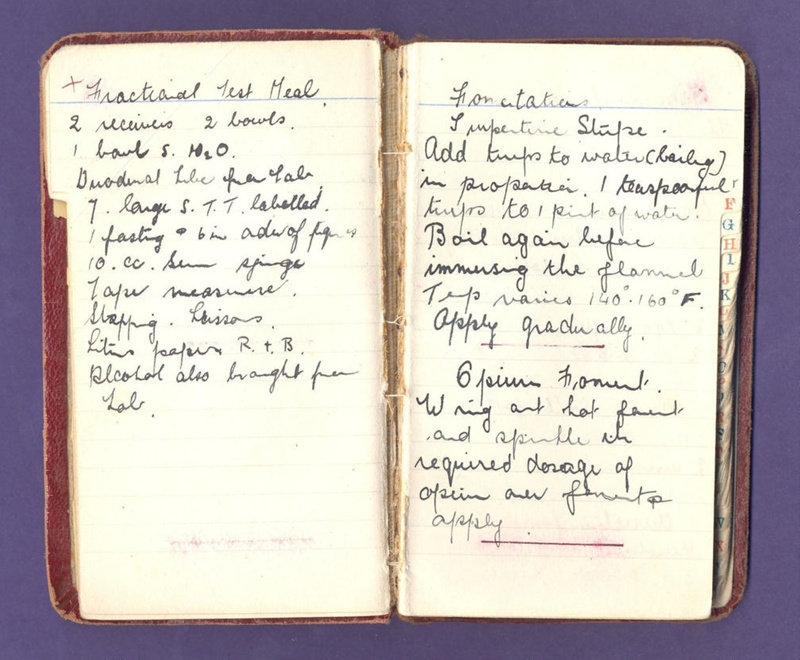 + Fractional Test Meal
2 receivers 2 bowls.
1 bowl S. H2O.
Duodenal tube from Lab
7. large S. T. T. labelled.
1 fasting & 6 in order of figures
10. cc. Serum syringe
Tape measure.
Strapping. Scissors.
Litmus papers R. + B.
Alcohol also brought from
Lab.
Fomentations
Turpentine Stupe.
Add turps to water (boiling)
in proportion. 1 teaspoonful
turps to 1 pint of water.
Boil again before
immersing the flannel
Temp varies 140°-160°F.
Apply gradually.
Opium Foment.
Wring out hot foment
and sprinkle in
required dosage of
opium over foment &
apply
F
G
H
I
J
K